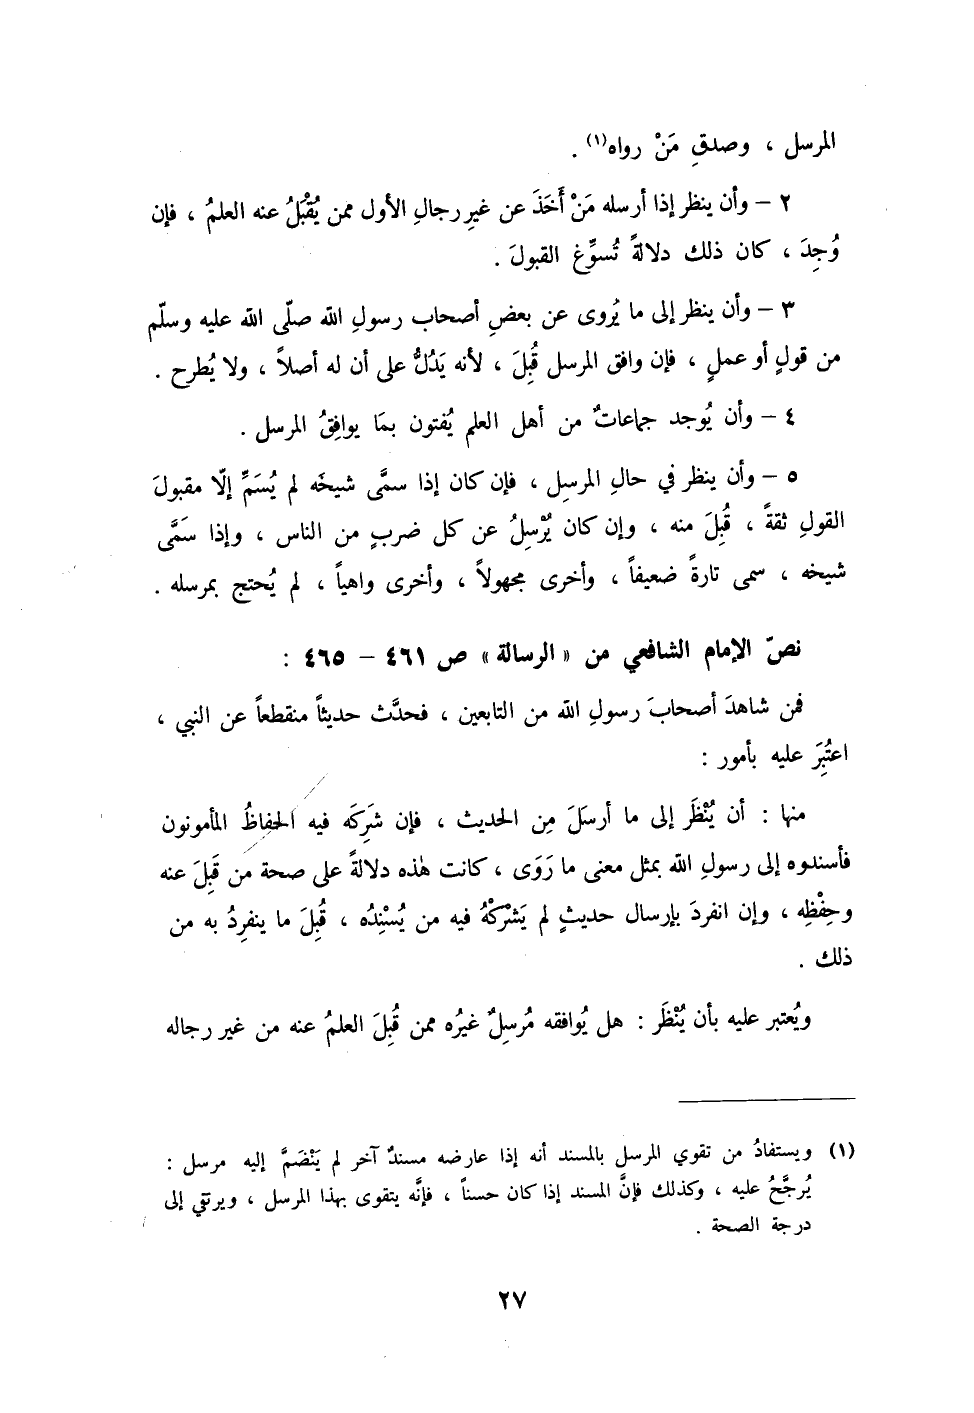 المرسل ، وصدقِ مَنْ رواه(١) .
٢ – وأن ينظر إذا أرسله مَنْ أَخَذَ عن غيرِ رجالِ الأول ممن يُقْبَلُ عنه العلمُ ، فإن
وُجِدَ ، كان ذلك دلالةً تُسوِّغ القبولَ .
٣ – وأن ينظر إلى ما يُروى عن بعضِ أصحاب رسولِ الله صلّى الله عليه وسلّم
من قولٍ أو عملٍ ، فإن وافق المرسل قُبِلَ ، لأنه يَدُلُّ على أن له أصلاً ، ولا يُطرح .
٤ – وأن يُوجد جماعاتٌ من أهل العلم يُفتون بمَا يوافِقُ المرسل .
٥ – وأن ينظر في حالِ المرسِل ، فإن كان إذا سمَّى شيخَه لم يُسَمِّ إلّا مقبولَ
القولِ ثقةً ، قُبِلَ منه ، وإن كان يُرْسِلُ عن كل ضربٍ من الناس ، وإذا سَمَّى
شيخه ، سمى تارةً ضعيفاً ، وأخرى مجهولاً ، وأخرى واهياً ، لم يُحتج بمرسله .
نصّ الإمام الشافعي من « الرسالة » ص ٤٦١ – ٤٦٥ :
فمن شاهدَ أصحابَ رسولِ الله من التابعين ، فحدَّث حديثاً منقطعاً عن النبي ،
اعتُبِرَ عليه بأمور :
منها : أن يُنْظَر إلى ما أرسَلَ مِن الحديث ، فإن شَرِكَه فيه الحفاظُ المأمونون
فأسندوه إلى رسولِ الله بمثل معنى ما رَوَى ، كانت هٰذه دلالةً على صحة من قَبِلَ عنه
وحِفْظِه ، وإن انفردَ بإرسال حديثٍ لم يَشرَكْهُ فيه من يُسْنِدُه ، قُبِلَ ما ينفرِدُ به من
ذلك .
ويُعتبر عليه بأن يُنْظَر : هل يُوافقه مُرسِلٌ غيرُه ممن قُبِلَ العلمُ عنه من غير رجاله
(١) ويستفادُ من تقوي المرسل بالمسند أنه إذا عارضه مسندٌ آخر لم يَنْضَمَّ إليه مرسل :
يُرجَّحُ عليه ، وكذلك فإنَّ المسند إذا كان حسناً ، فإنَّه يتقوى بهذا المرسل ، ويرتقي إلى
درجة الصحة .
٢٧